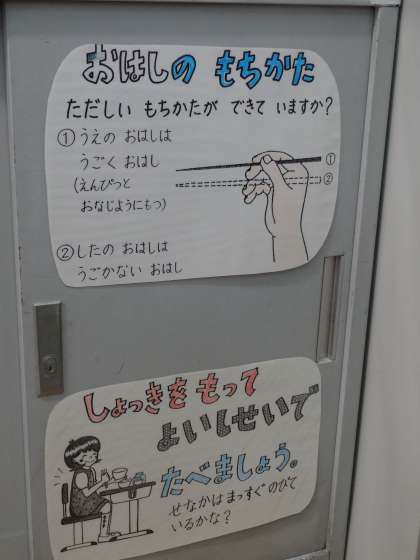 おはしの もちかた
ただしい もちかたが できて いますか?
①うえの おはしは
うごく おはし
(えんぴつと
おなじようにもつ)
①
②
②したの おはしは
うごかない おはし
しょっきを もって
よいしせいで
たべましょう。
せなかは まっすぐ のびて
いるかな?